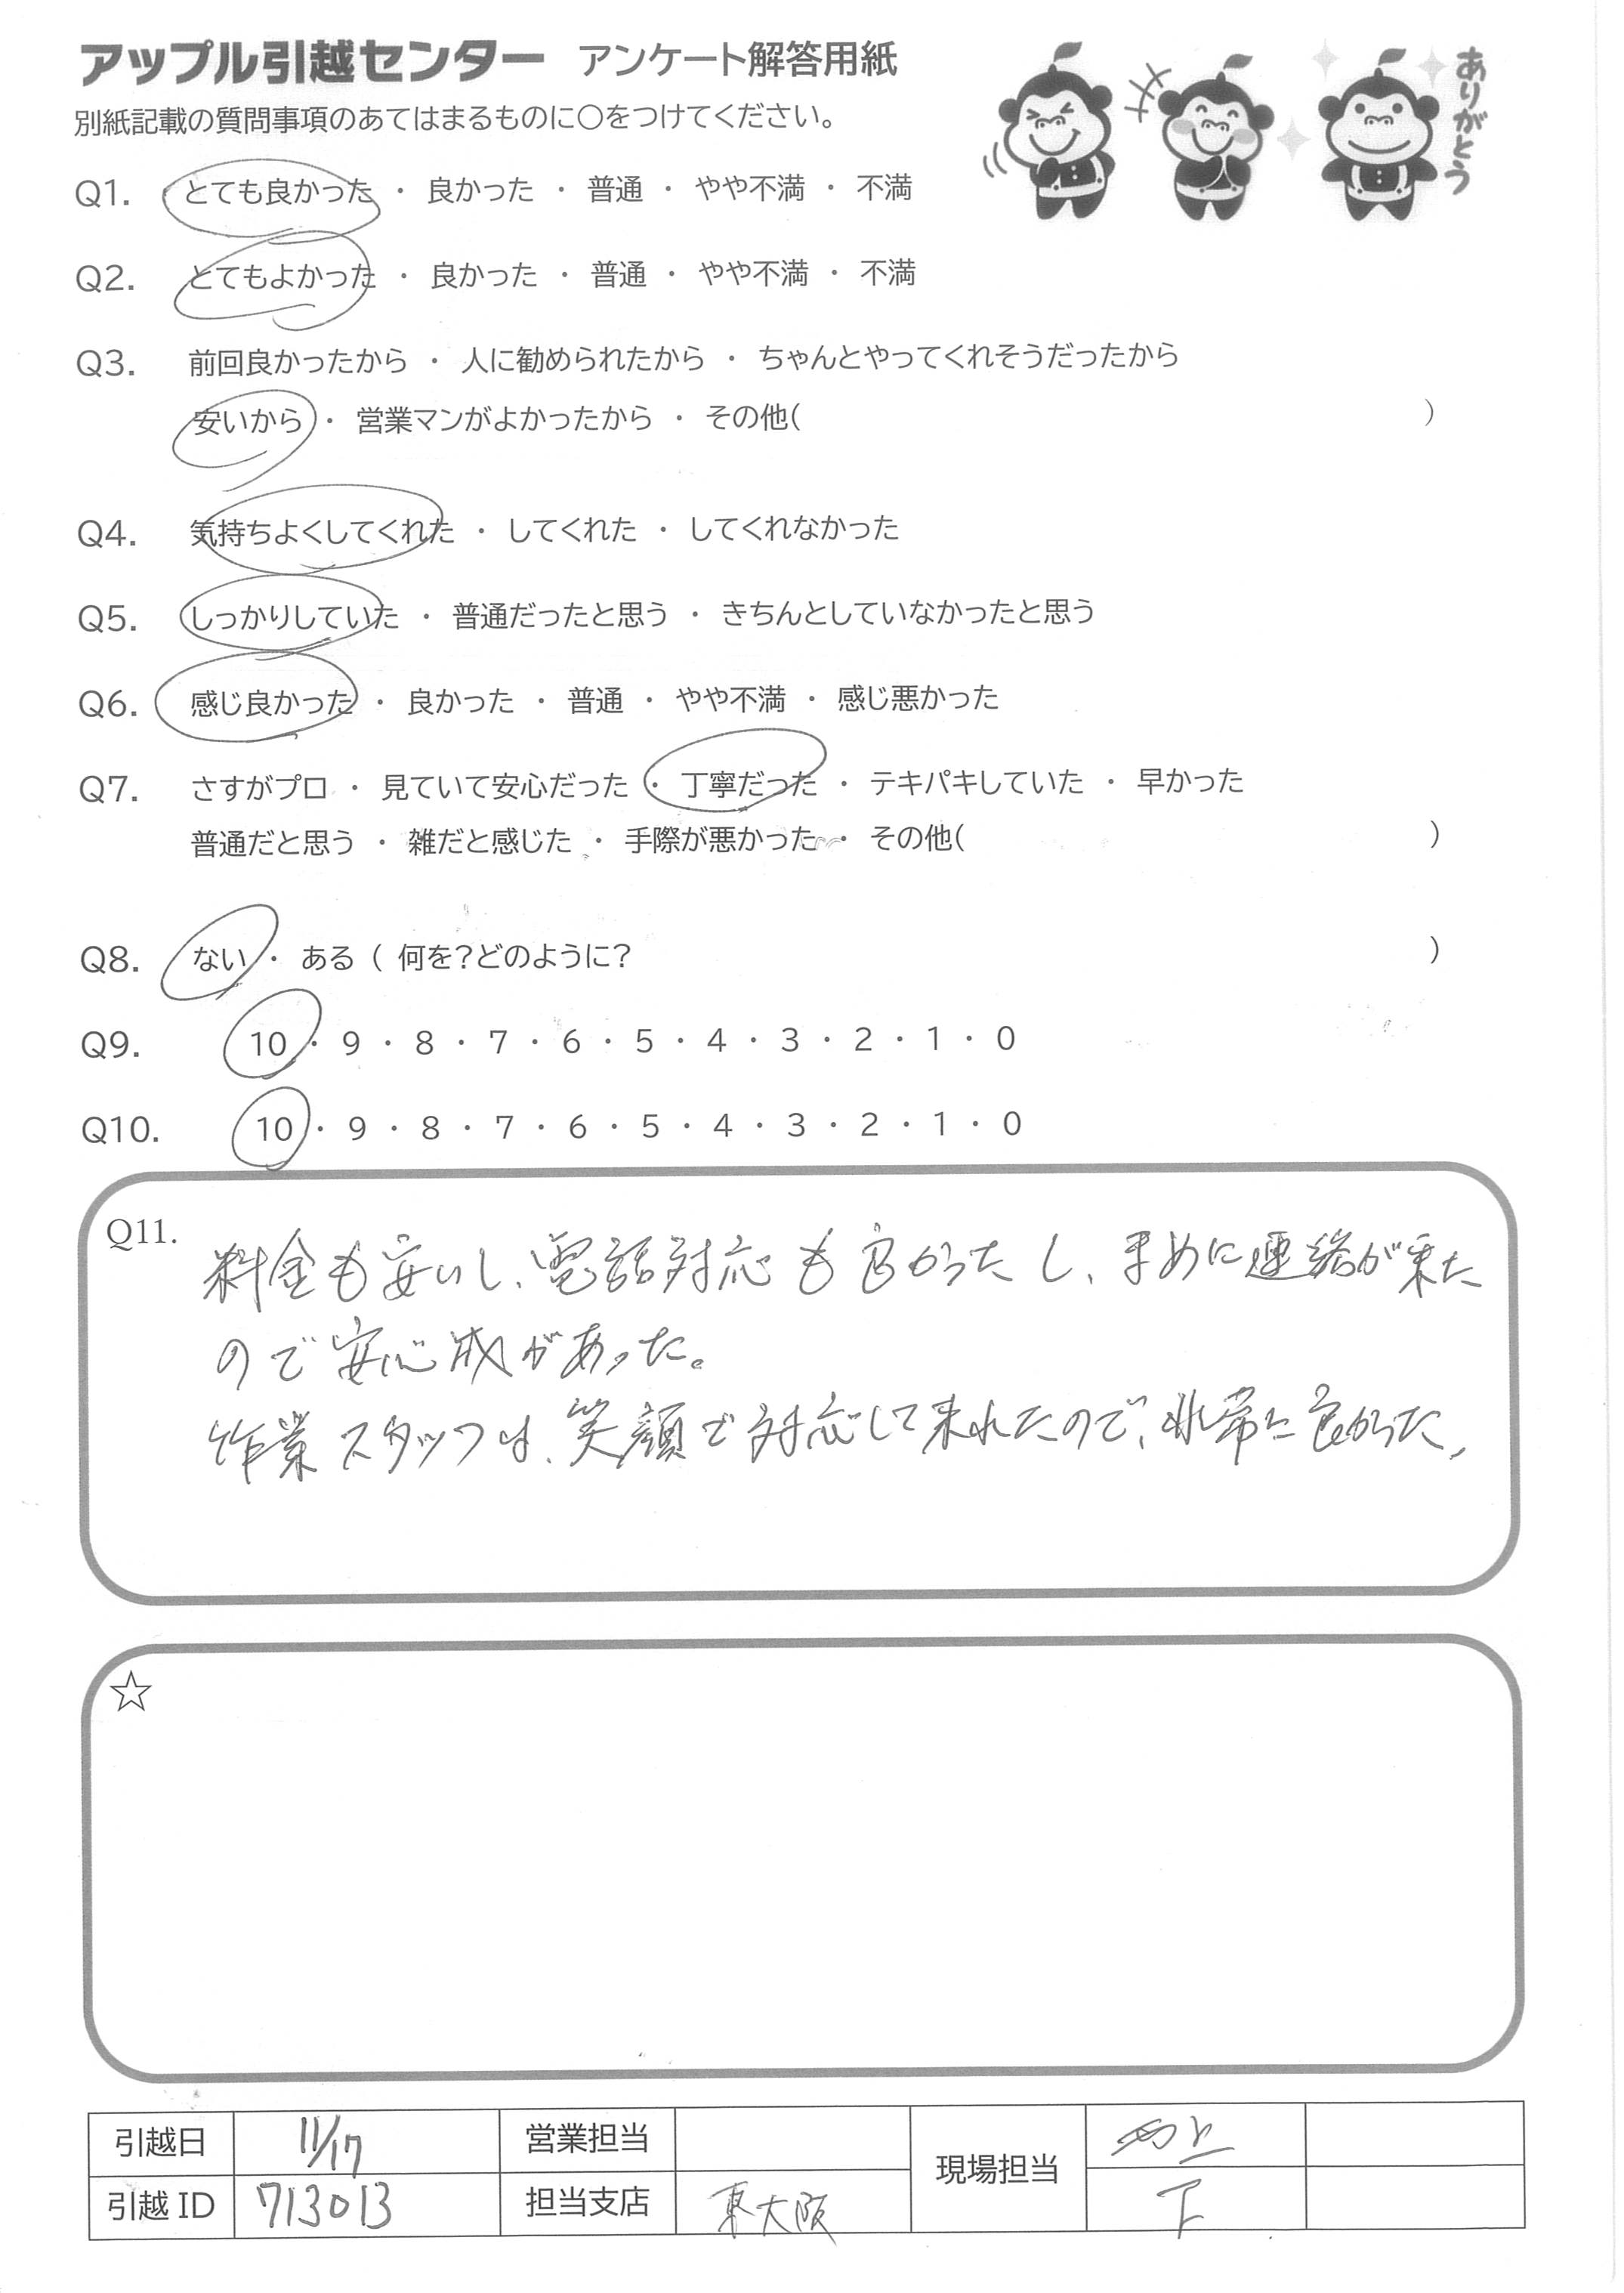 アップル引越センター アンケート解答用紙
別紙記載の質問事項のあてはまるものに〇をつけてください。
ありがとう
Q1. とても良かった ・ 良かった ・ 普通 ・ やや不満 ・ 不満
Q2. とてもよかった ・ 良かった ・ 普通 ・ やや不満 ・ 不満
Q3. 前回良かったから ・ 人に勧められたから ・ ちゃんとやってくれそうだったから
安いから ・ 営業マンがよかったから ・ その他( )
Q4. 気持ちよくしてくれた ・ してくれた ・ してくれなかった
Q5. しっかりしていた ・ 普通だったと思う ・ きちんとしていなかったと思う
Q6. 感じ良かった ・ 良かった ・ 普通 ・ やや不満 ・ 感じ悪かった
Q7. さすがプロ ・ 見ていて安心だった ・ 丁寧だった ・ テキパキしていた ・ 早かった
普通だと思う ・ 雑だと感じた ・ 手際が悪かった ・ その他( )
Q8. ない ・ ある ( 何を?どのように? )
Q9. 10 ・ 9 ・ 8 ・ 7 ・ 6 ・ 5 ・ 4 ・ 3 ・ 2 ・ 1 ・ 0
Q10. 10 ・ 9 ・ 8 ・ 7 ・ 6 ・ 5 ・ 4 ・ 3 ・ 2 ・ 1 ・ 0
Q11. 料金も安いし、電話対応も良かったし、まめに連絡が来た
ので安心感があった。
作業スタッフは、笑顔で対応して来れたので、非常に良かった、
☆
引越日 11/17 営業担当 現場担当
引越ID 713013 担当支店 東大阪 下